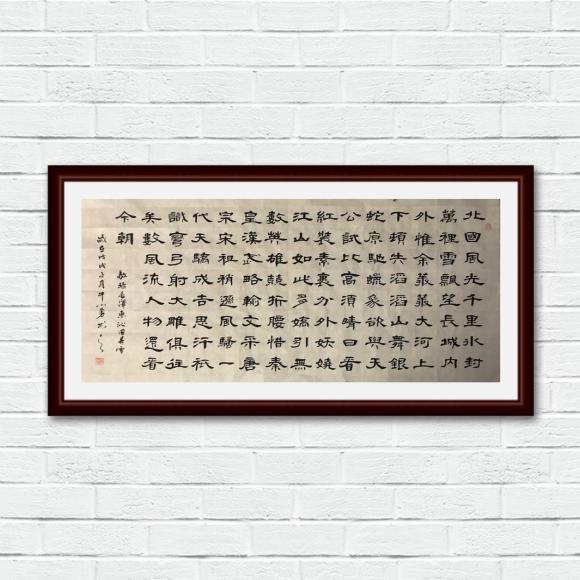 北國風光千里冰封
萬裡雪飄望長城內
外惟余莽莽大河上
下頓失滔滔山舞銀
蛇原馳蠟象欲與天
公試比高須晴日看
紅裝素裹分外妖嬈
江山如此多嬌引無
數英雄競折腰惜秦
皇漢武略輸文采唐
宗宋祖稍遜風騷一
代天驕成吉思汗祇
識彎弓射大雕俱往
矣數風流人物還看
今朝
毛澤東沁園春雪
歲在戊戌